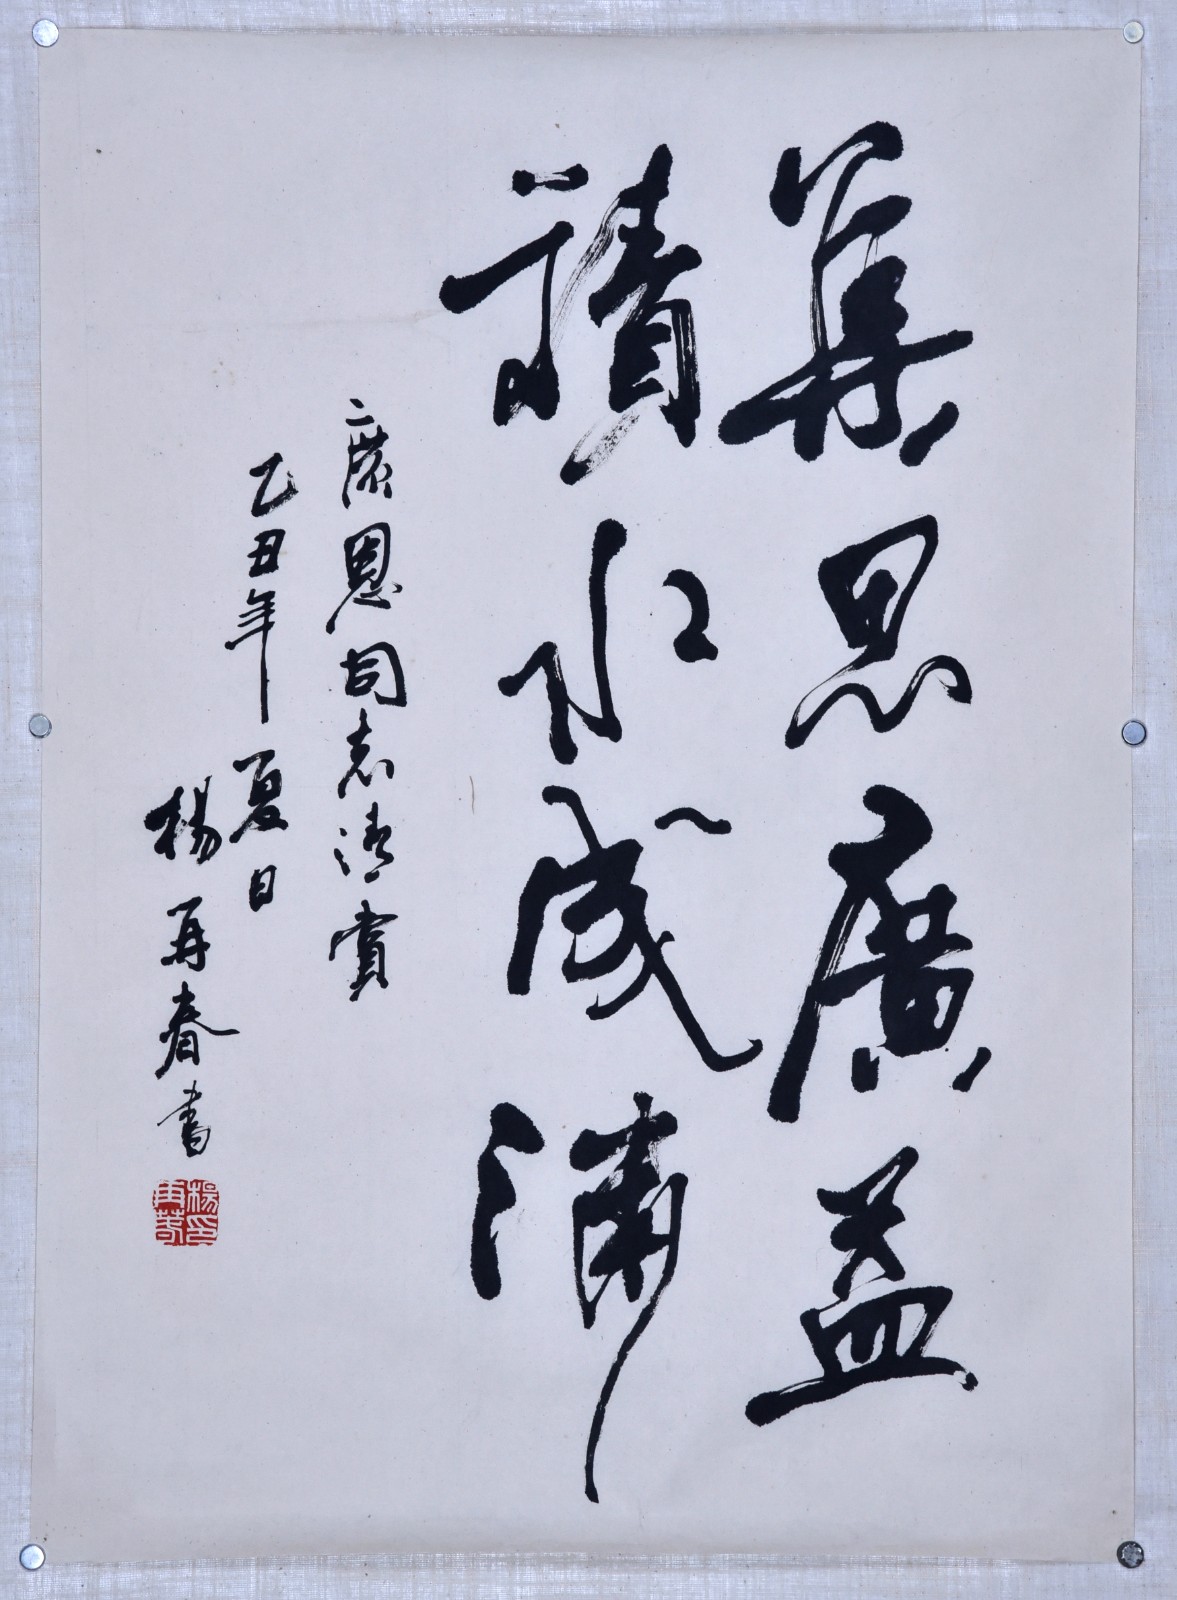 集思廣益
積水成淵
廣恩同志清賞
乙丑年夏日
楊再春書
楊印再春